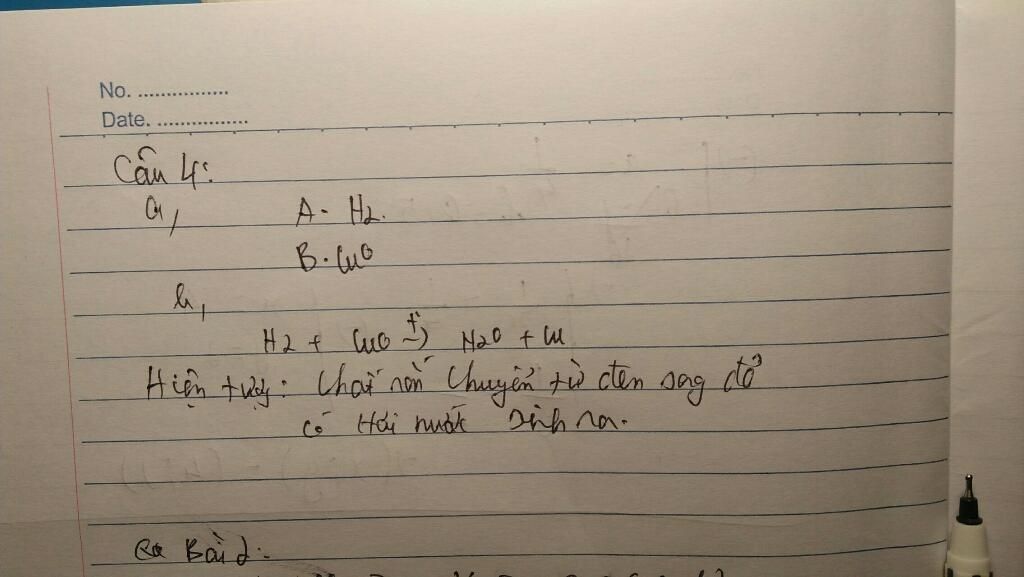 No. ................
Date. ................
Câu 4:
a, A - H2.
B. CuO
b,
H2 + CuO t°→ H2O + Cu
Hiện tượng: Chất rắn chuyển từ đen sang đỏ
có Hơi nước sinh ra.
Bài 2: